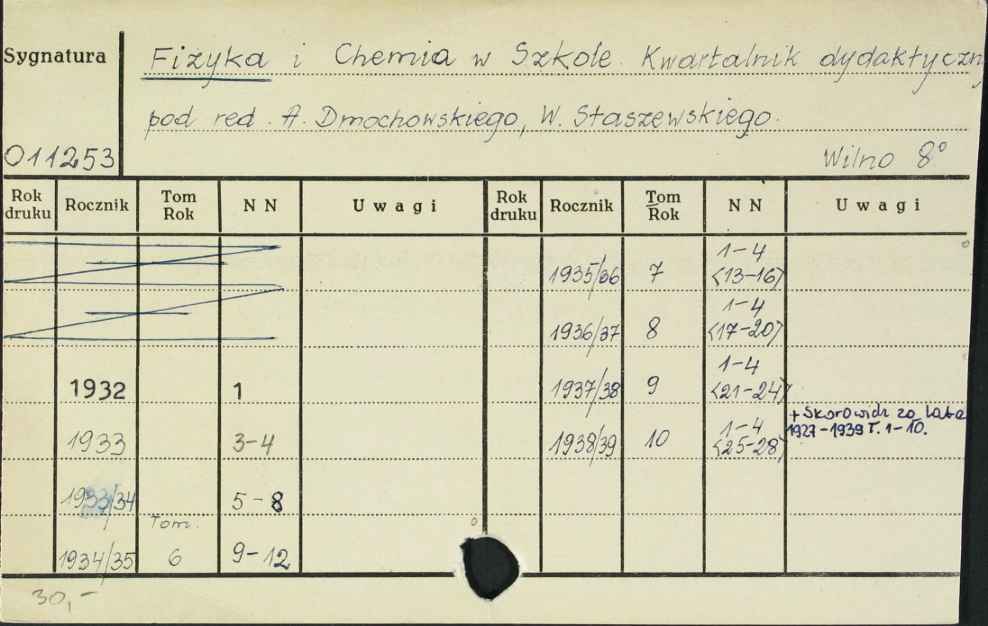 Sygnatura
Fizyka i Chemia w Szkole. Kwartalnik dydaktyczny
pod red. A. Dmochowskiego, W. Staszewskiego.
011253
Wilno 8°
Rok druku Rocznik Tom Rok NN Uwagi Rok druku Rocznik Tom Rok NN Uwagi
1935/36 7 1-4 <13-16>
1936/37 8 1-4 <17-20>
1932 1 1937/38 9 1-4 <21-24>
1933 3-4 1938/39 10 1-4 <25-28> + Skorowidz za lata
1927-1939 T. 1-10.
1933/34 5-8
Tom.
1934/35 6 9-12
30,-